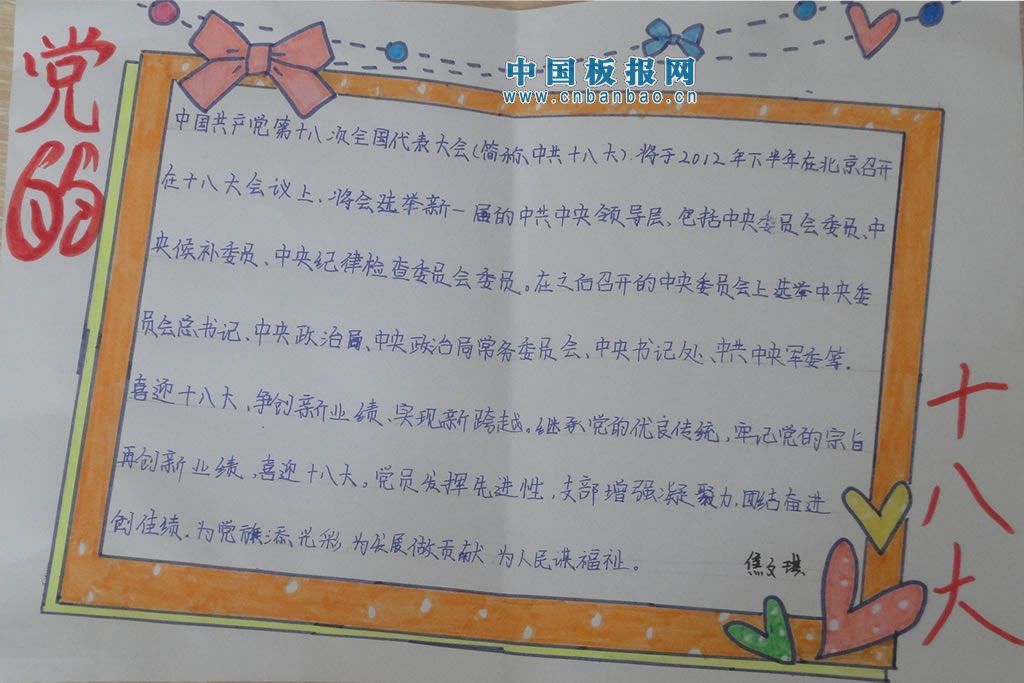 党的
中国板报网
www.cnbanbao.cn
中国共产党第十八次全国代表大会(简称、中共十八大).将于2012年下半年在北京召开
在十八大会议上、将会选举新一届的中共中央领导层、包括中央委员会委员、中
央候补委员、中央纪律检查委员会委员。在之后召开的中央委员会上选举中央委
员会总书记、中央政治局、中央政治局常务委员会、中央书记处、中共中央军委等.
喜迎十八大、争创新业绩、实现新跨越。继承党的优良传统,牢记党的宗旨
再创新业绩,喜迎十八大。党员发挥先进性,支部增强凝聚力,团结奋进
创佳绩.为党旗添光彩 为发展做贡献 为人民谋福祉。
焦文琪
十八大